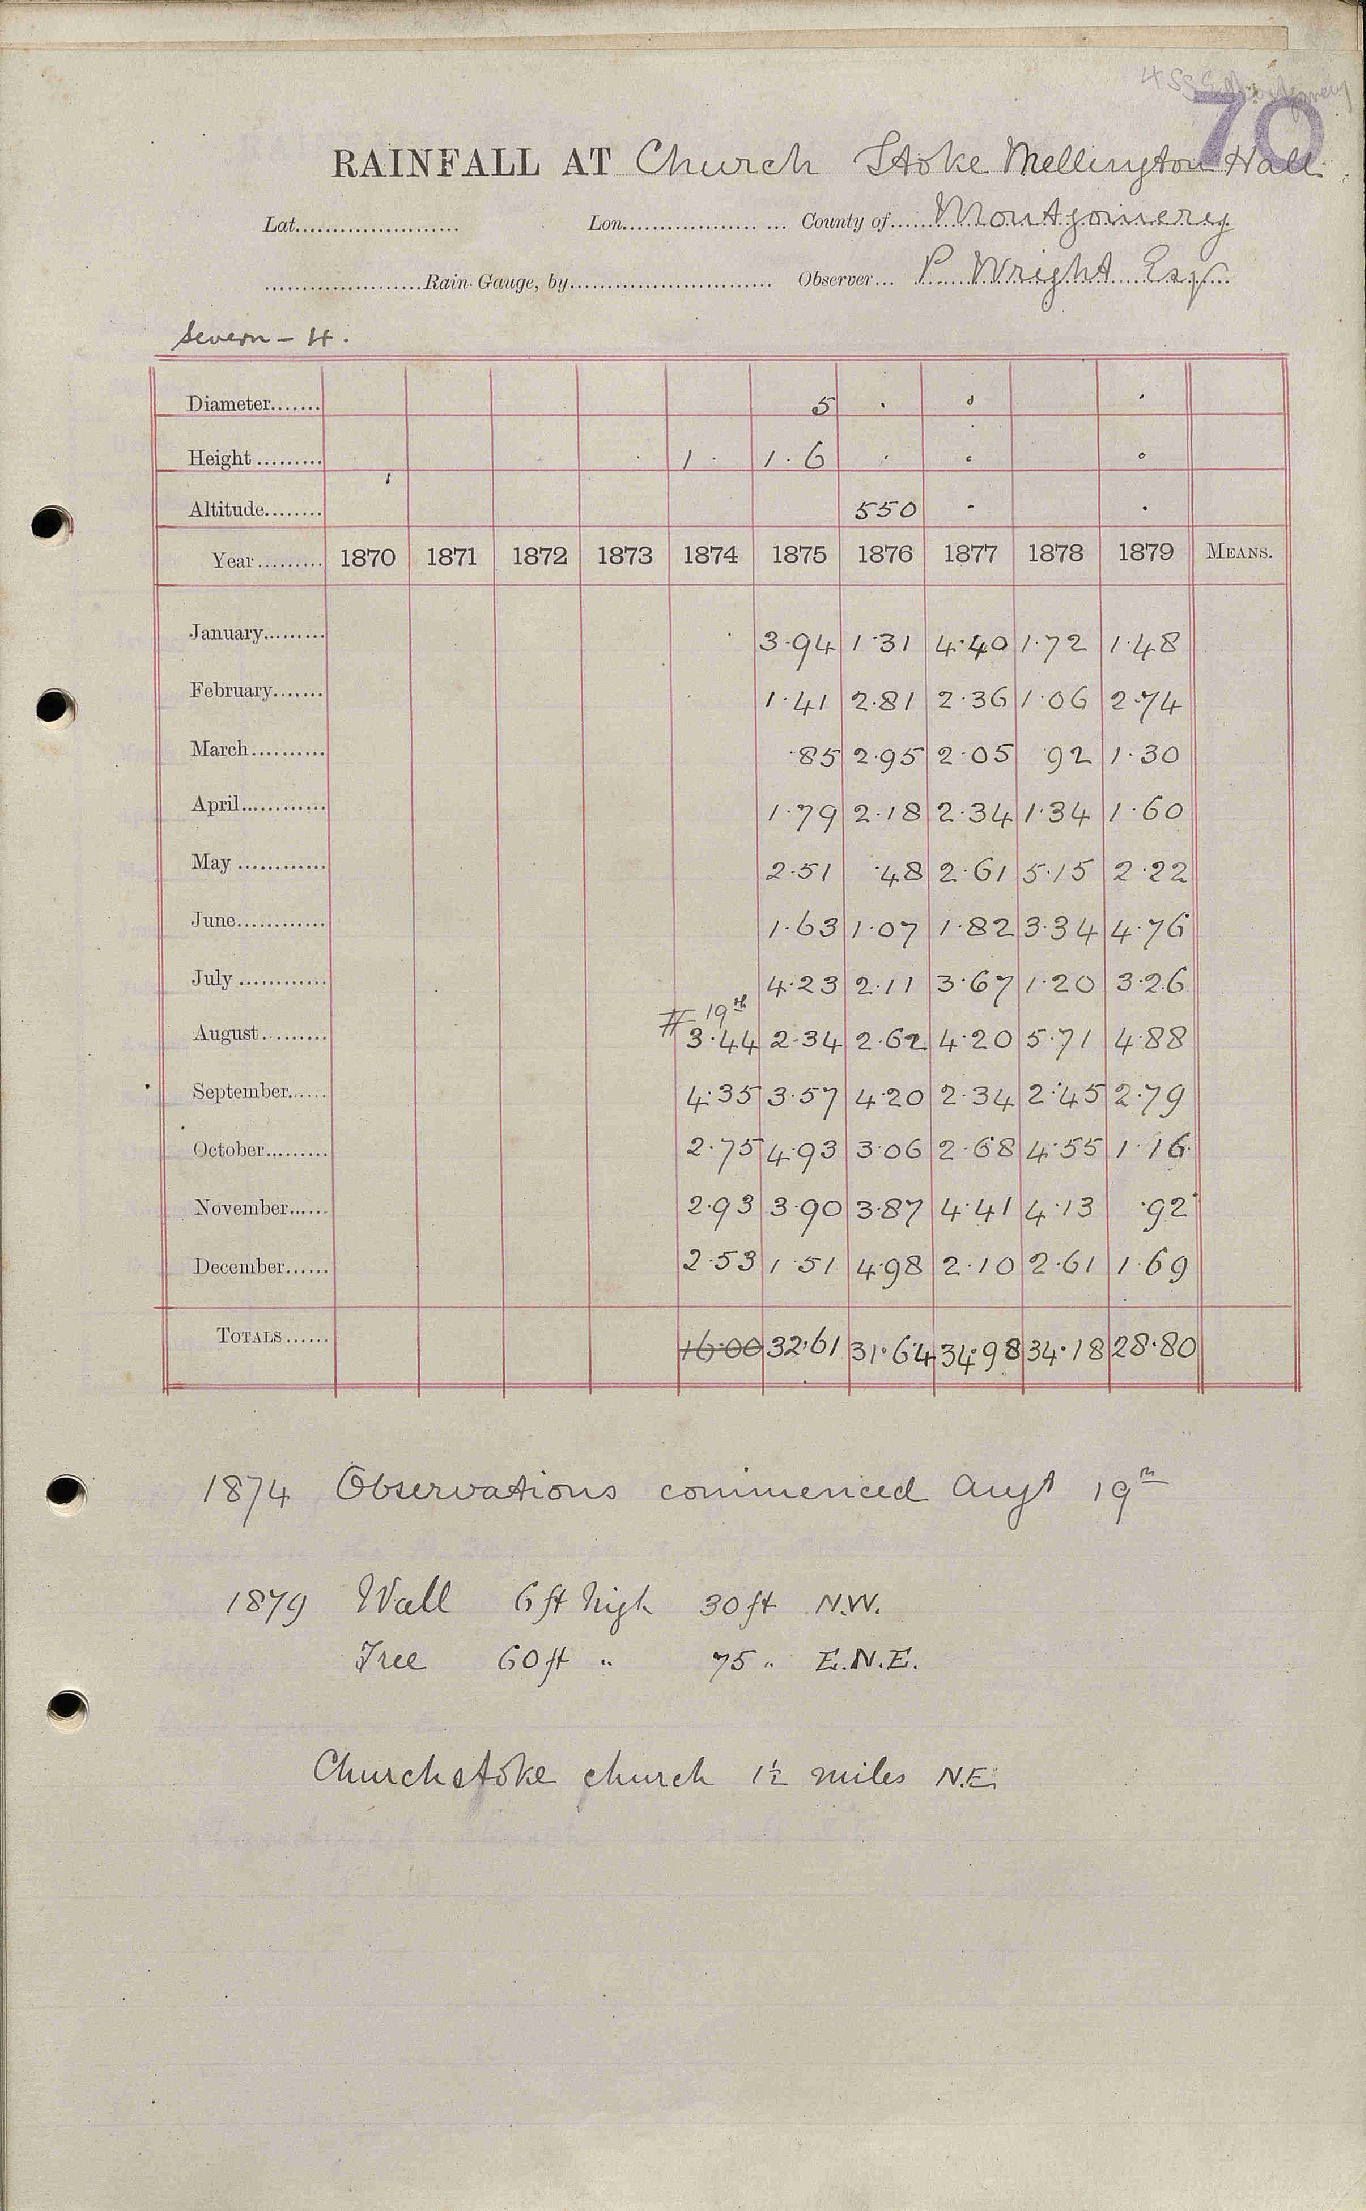 70
RAINFALL AT Church Stoke Mellington Hall
Lat. Lon. County of Montgomery
Rain Gauge, by Observer P. Wright Esqr
Severn – H.
Diameter 5 . . .
Height 1 . 1.6 . . .
Altitude 550 . .
Year 1870 1871 1872 1873 1874 1875 1876 1877 1878 1879 MEANS.
January 3.94 1.31 4.40 1.72 1.48
February 1.41 2.81 2.36 1.06 2.74
March .85 2.95 2.05 .92 1.30
April 1.79 2.18 2.34 1.34 1.60
May 2.51 .48 2.61 5.15 2.22
June 1.63 1.07 1.82 3.34 4.76
July 4.23 2.11 3.67 1.20 3.26
# 19th
August 3.44 2.34 2.62 4.20 5.71 4.88
September 4.35 3.57 4.20 2.34 2.45 2.79
October 2.75 4.93 3.06 2.68 4.55 1.16
November 2.93 3.90 3.87 4.41 4.13 .92
December 2.53 1.51 4.98 2.10 2.61 1.69
TOTALS 16.00 32.61 31.64 34.98 34.18 28.80
1874 Observations commenced Augt 19th
1879 Wall 6 ft high 30 ft N.W.
Tree 60 ft " 75 " E.N.E.
Churchstoke church 1½ miles N.E.